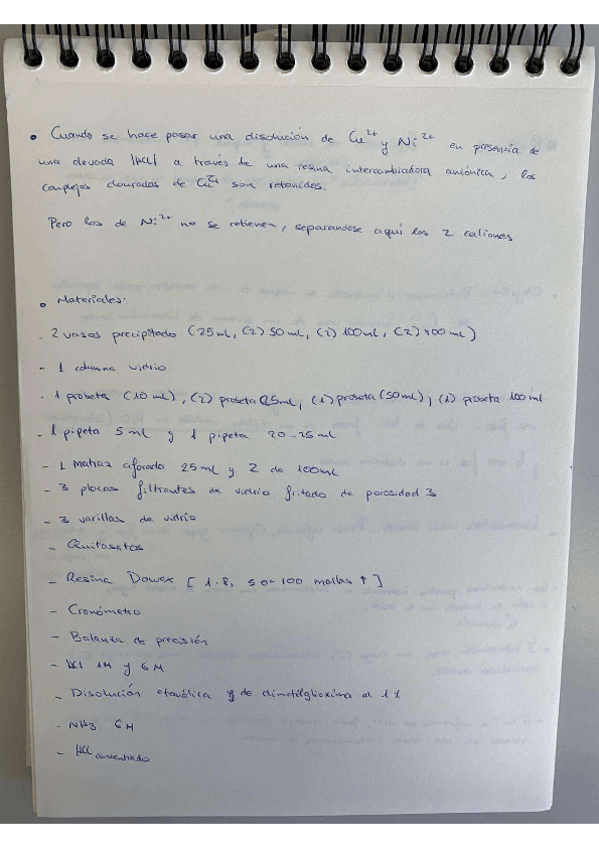 • Cuando se hace pasar una disolución de Cu²⁺ y Ni²⁺ en presencia de
una elevada [HCl] a través de una resina intercambiadora aniónica, los
complejos clorurados de Cu²⁺ son retenidos.
Pero los de Ni²⁺ no se retienen, separandose aqui los 2 cationes
• Materiales:
- 2 vasos precipitado (25mL, (2) 50 mL, (2) 100mL, (2) 400 mL)
- 1 columna vidrio
- 1 probeta (10 mL), (2) probeta 25mL, (1) probeta (50mL), (1) probeta 100ml
- 1 pipeta 5 mL y 1 pipeta 20-25 mL
- 1 Matraz aforado 25mL y 2 de 100mL
- 3 placas filtrantes de vidrio fritado de porosidad 3
- 3 varillas de vidrio
- Quitasatos
- Resina Dowex [ 1-8, 50-100 mallas ]
- Cronómetro
- Balanza de precisión
- HCl 1M y 6M
- Disolución etanólica de dimetilglioxima al 1%
- NH3 6M
- HCl concentrado